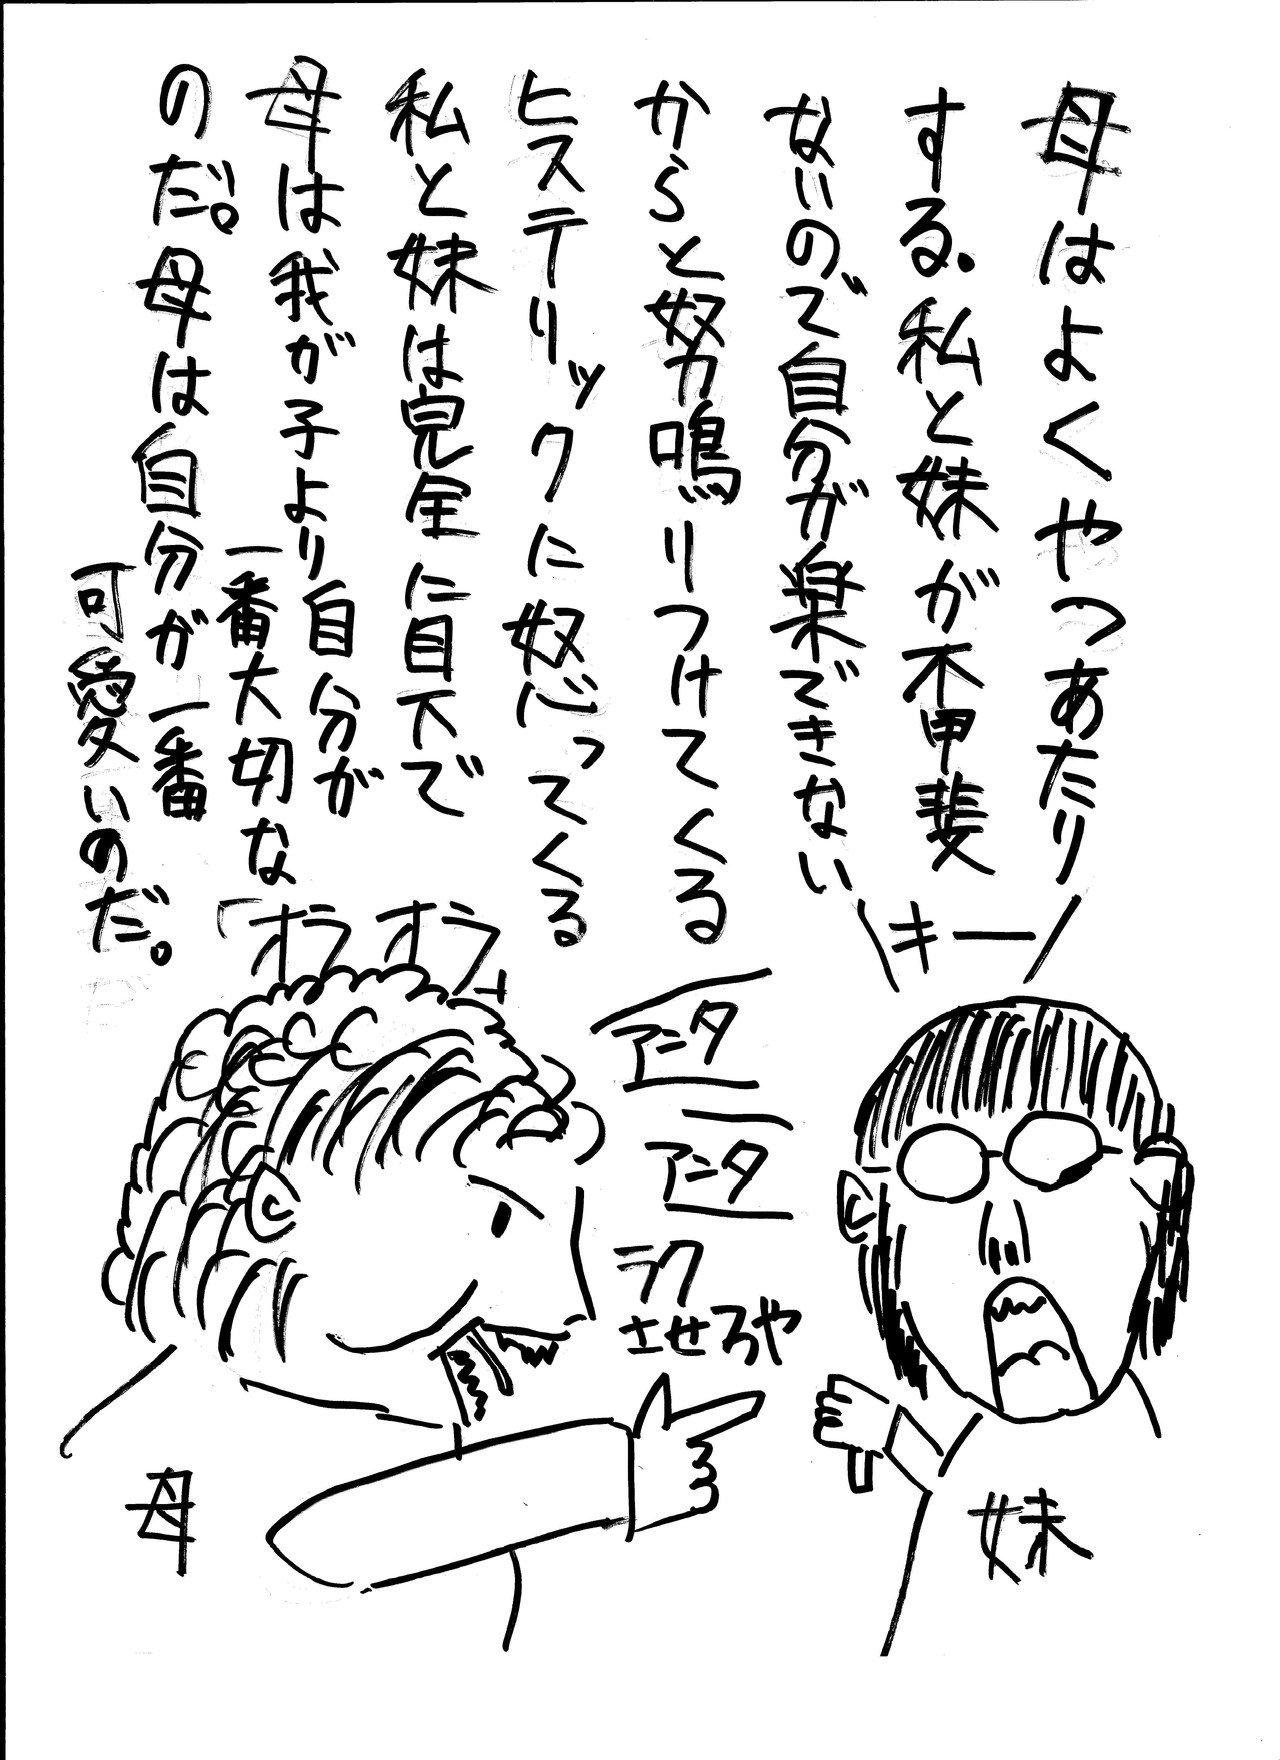 母はよくやつあたり
する。私と妹が不甲斐
ないので自分が楽できない
からと怒鳴りつけてくる
ヒステリックに怒ってくる
私と妹は完全に目下で
母は我が子より自分が
一番大切な
のだ。母は自分が一番
可愛いのだ。
キー
「オラオラ」
アニタ
アニタ
ラク
させろや
母
妹